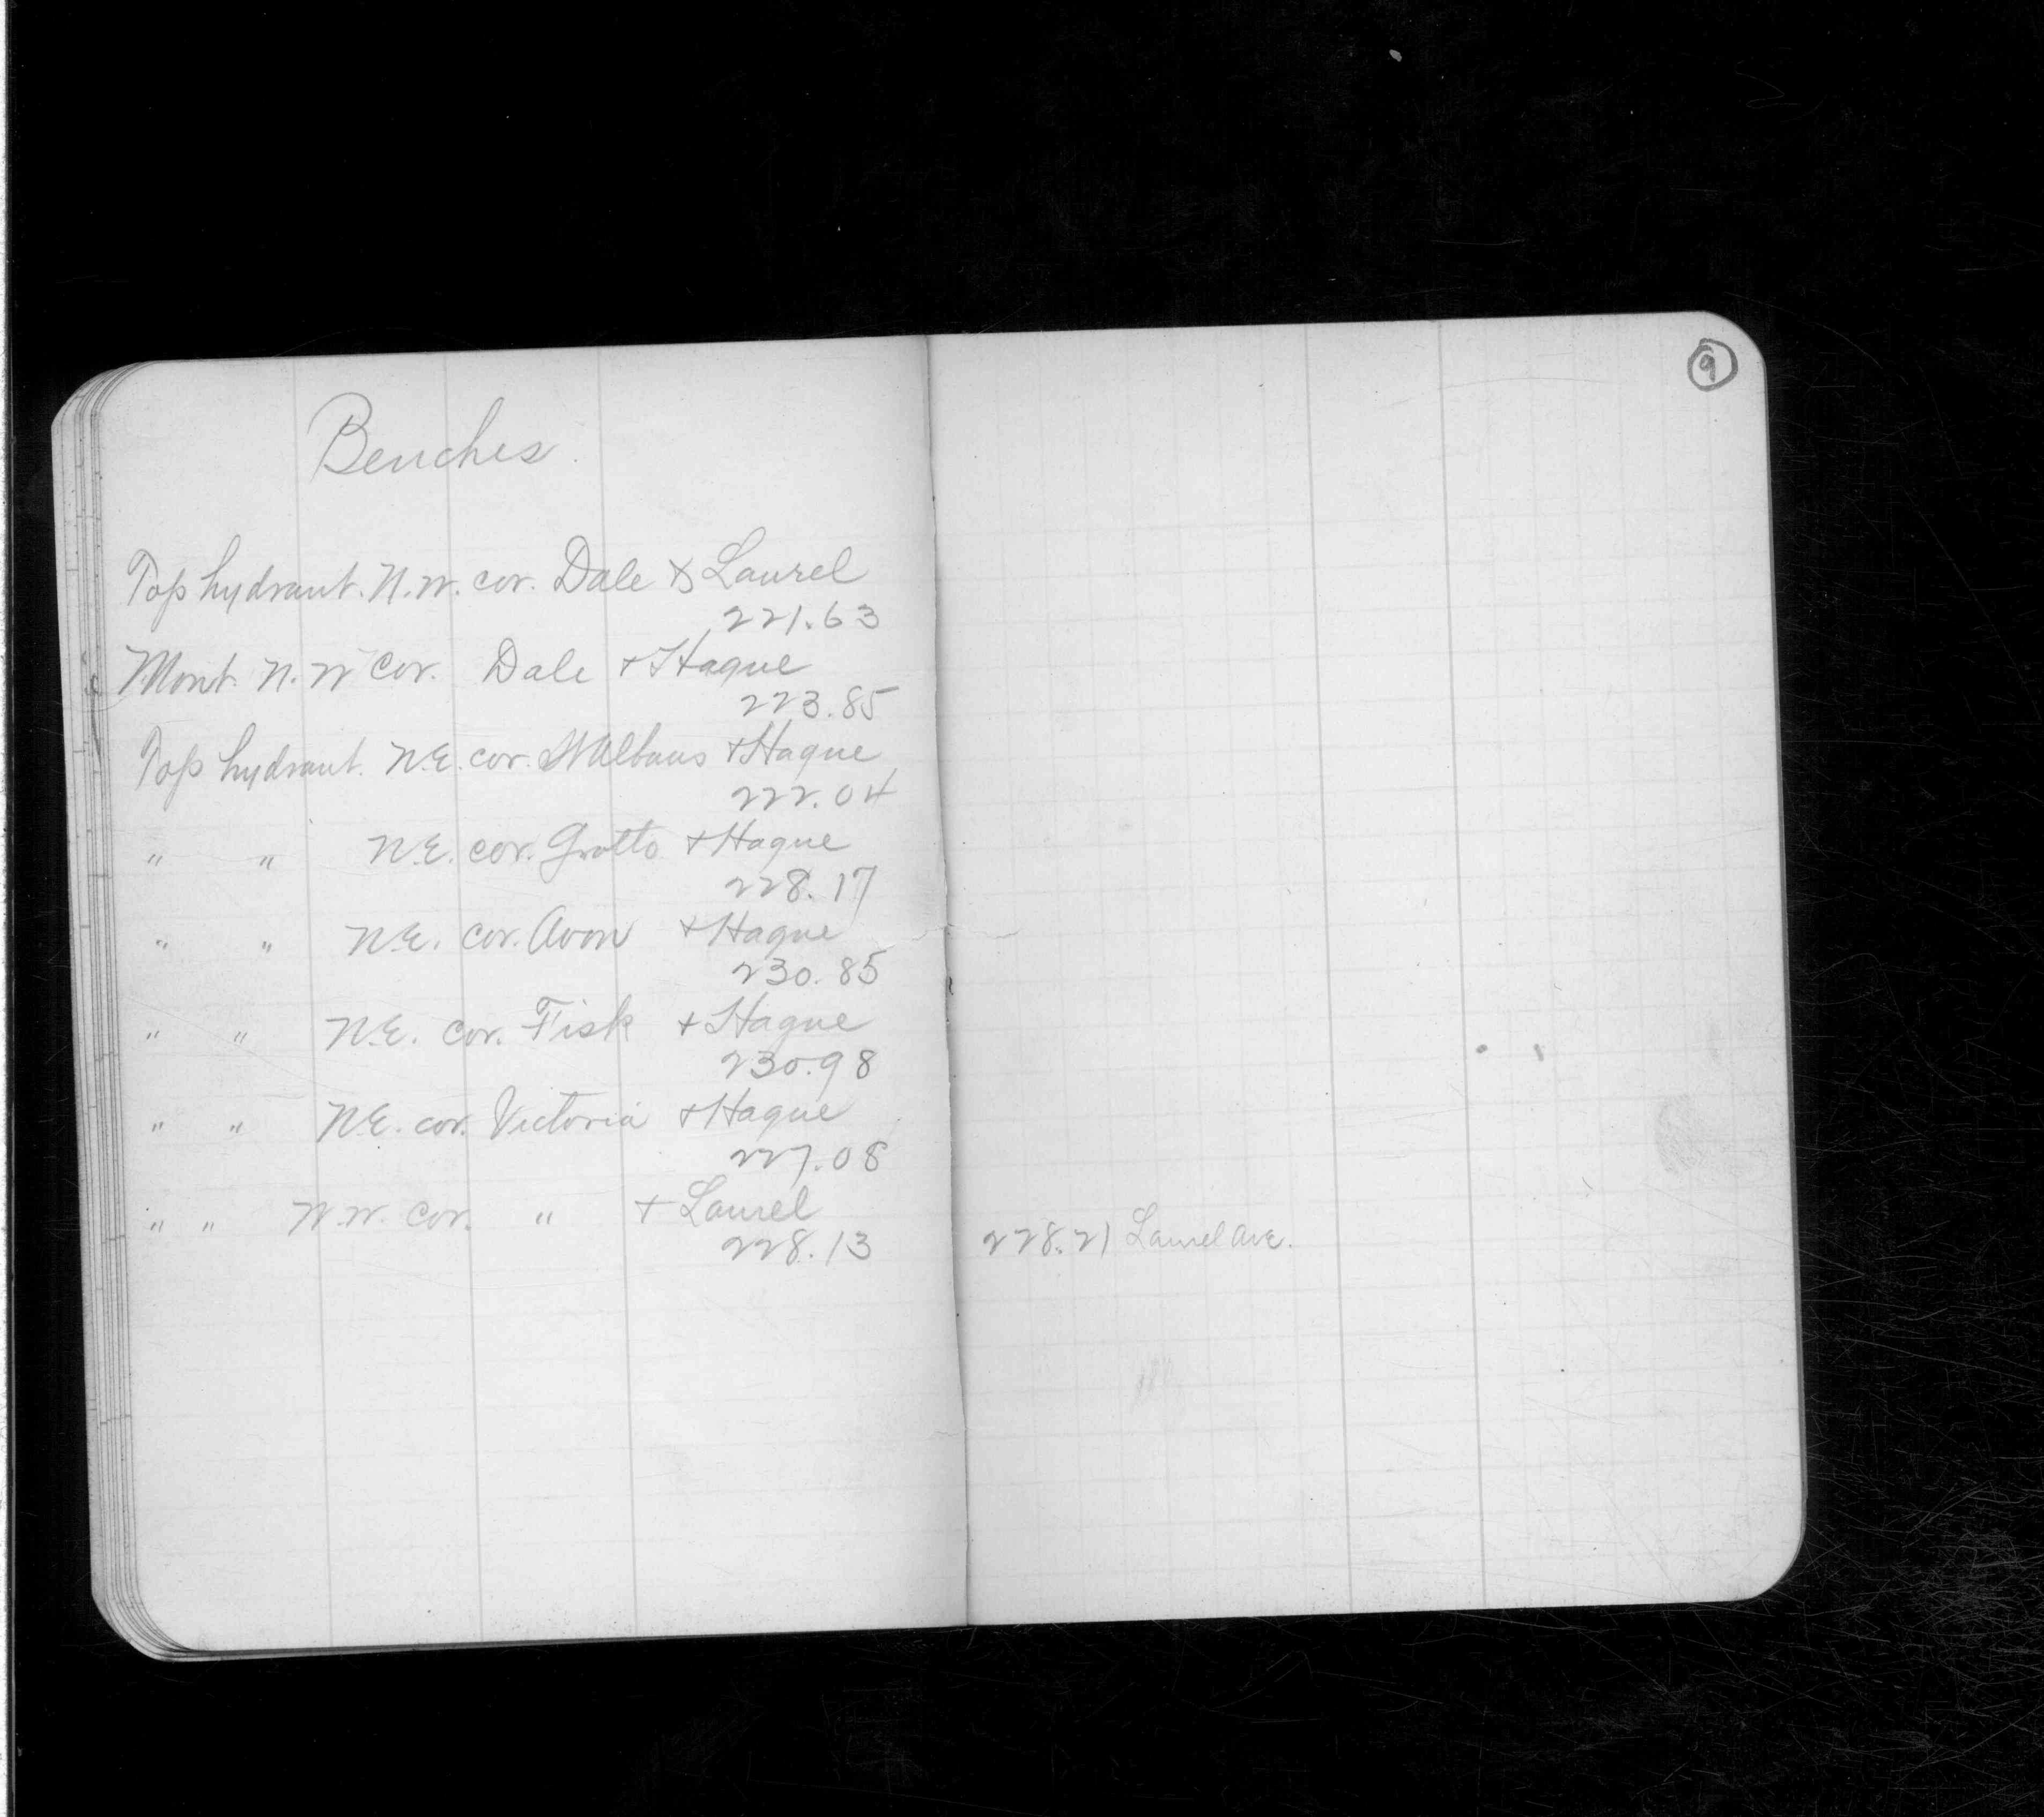 9
Benches.
Top hydrant. N.W. cor. Dale & Laurel
221.63
Mont. N.W cor. Dale + Hague
223.85
Top hydrant. N.E. cor. St Albans + Hague
222.04
" " N.E. cor. Grotto + Hague
228.17
" " N.E. cor. Avon + Hague
230.85
" " N.E. cor. Fisk + Hague
230.98
" " N.E. cor. Victoria + Hague
227.08
" " N.W. cor. " + Laurel
228.13
228.21 Laurel Ave.